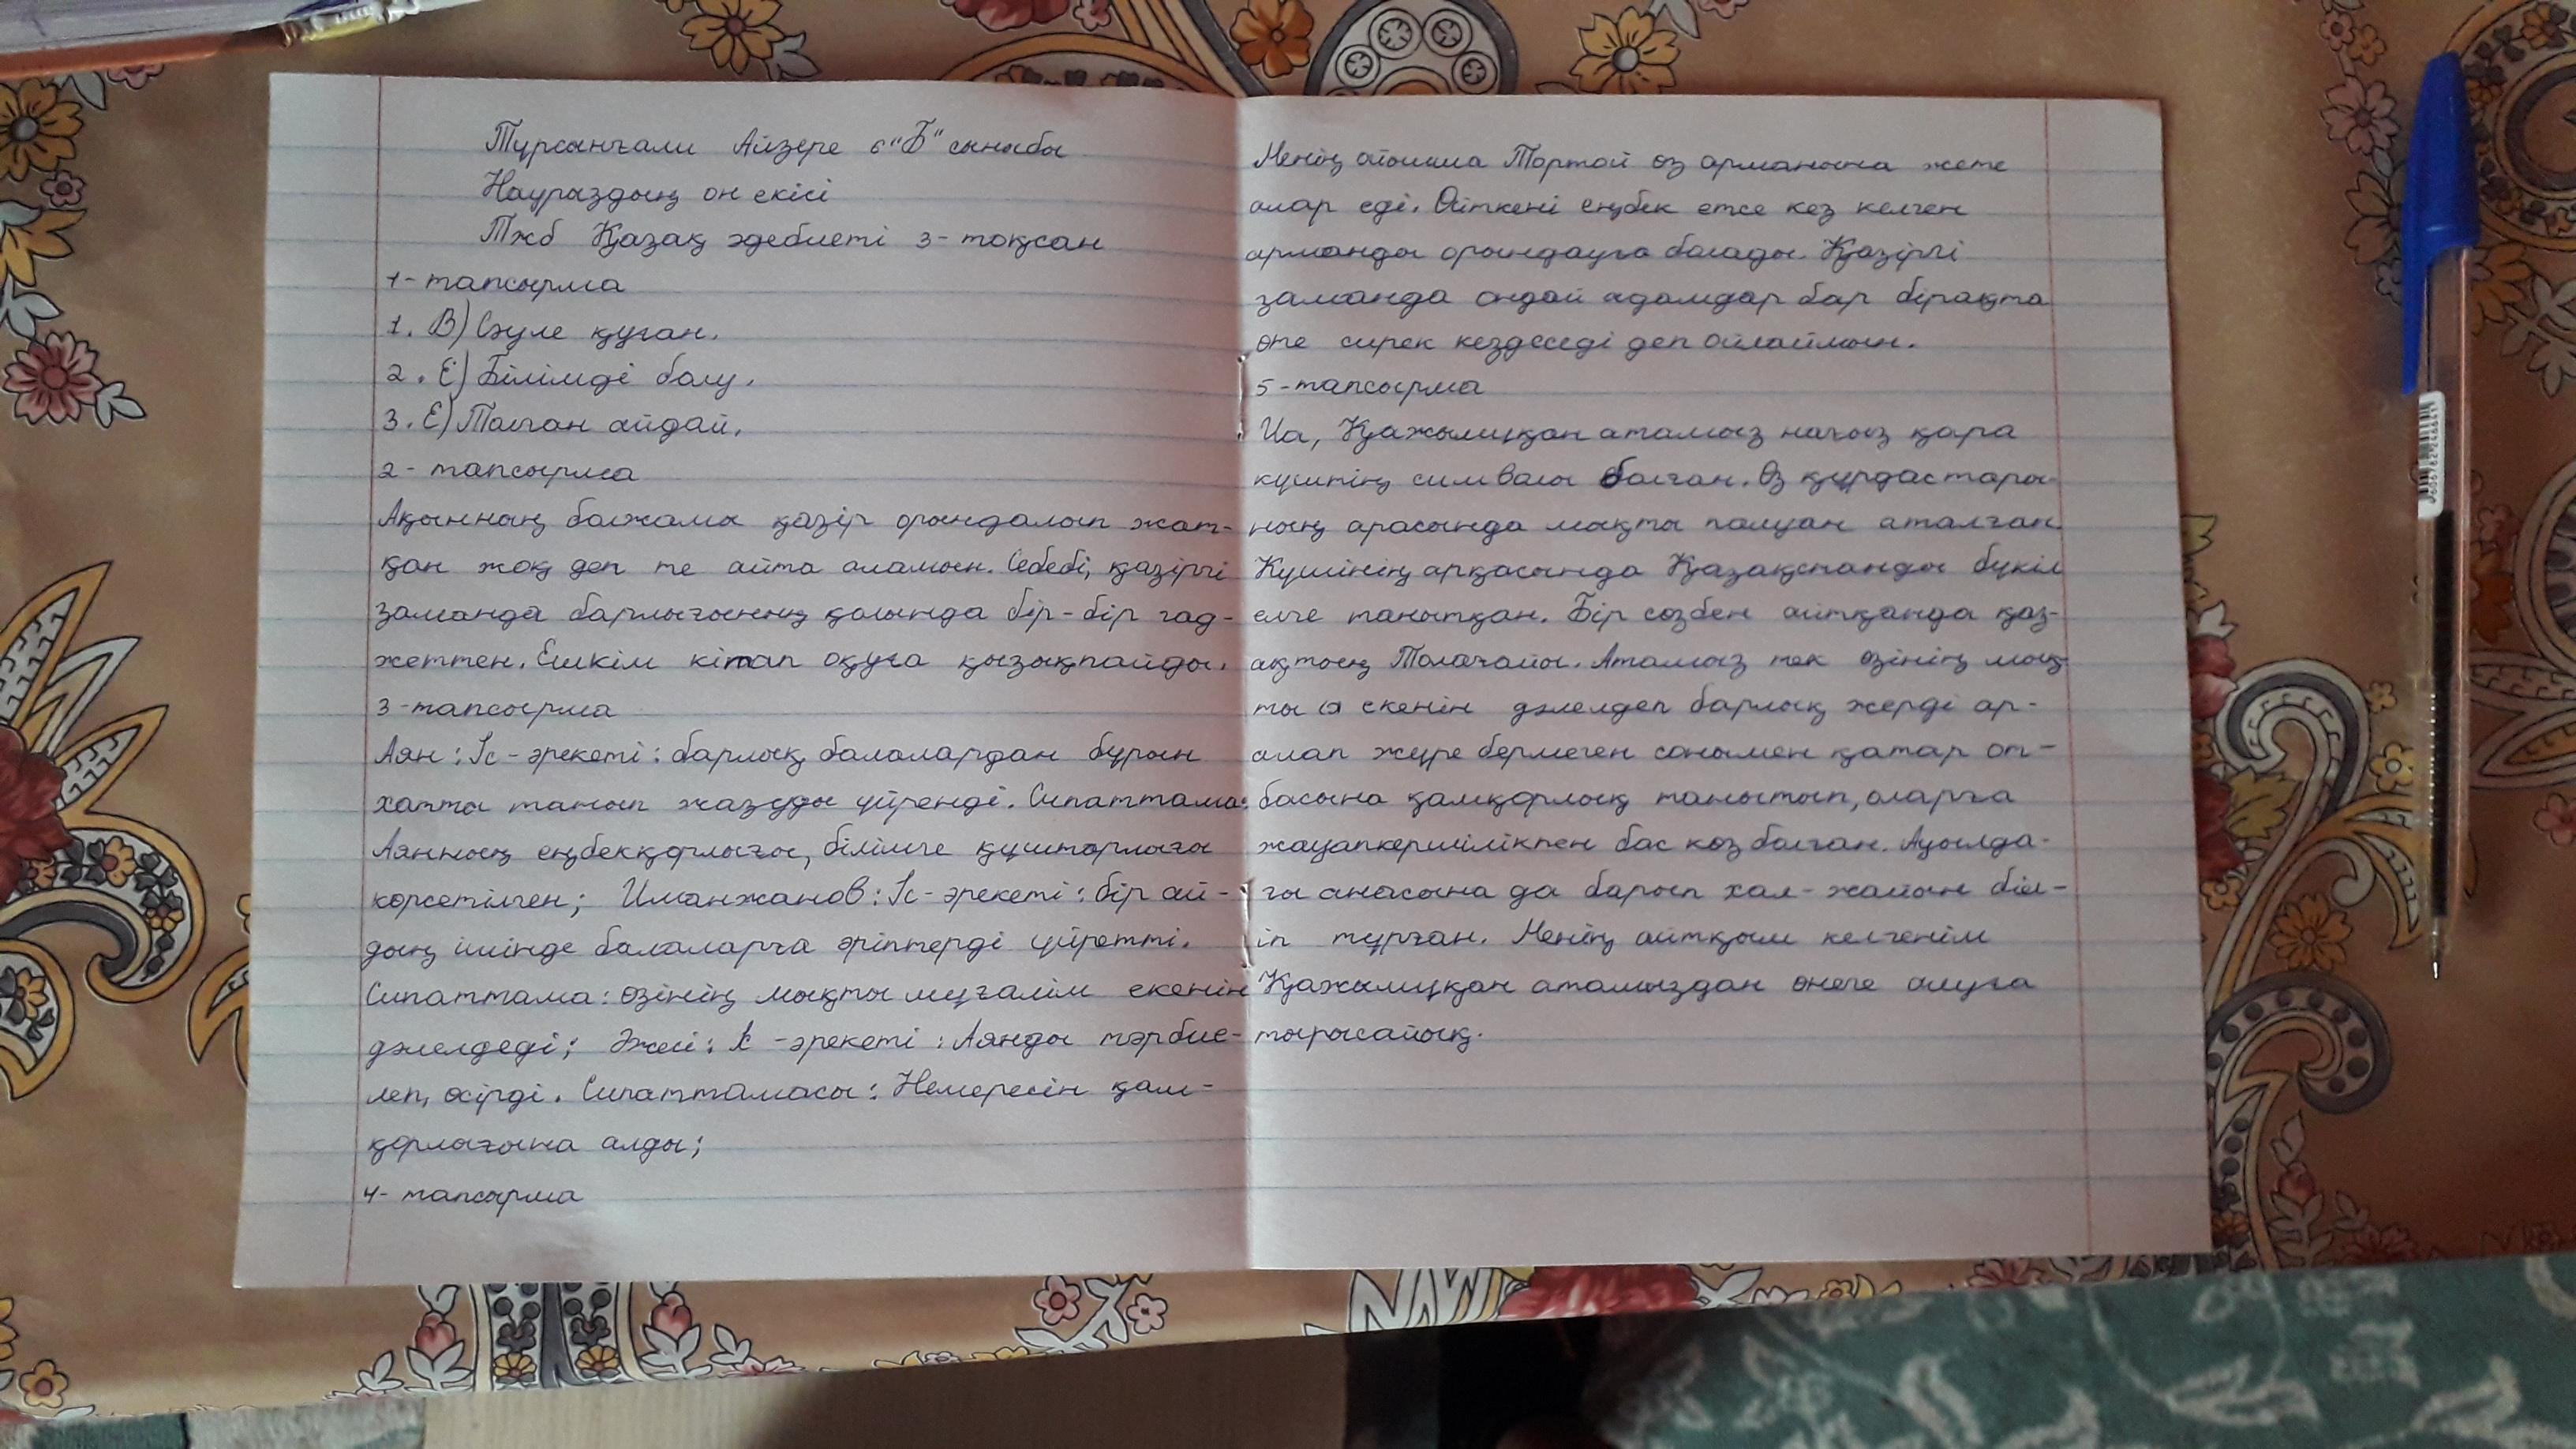 Тұрсанғали Айзере 6 "Б" сыныбы
Наурыздың он екісі
Тжб Қазақ әдебиеті 3-тоқсан
1-тапсырма
1. В) Сәуле қуған.
2. Е) Білімді болу.
3. Е) Толған айдай.
2-тапсырма
Ақынның болжамы қазір орындалып жат-
қан жоқ деп те айта аламын. Себебі, қазіргі
заманда барлығының қолында бір-бір гад-
жеттен. Ешкім кітап оқуға қызықпайды.
3-тапсырма
Аян: Іс-әрекеті: барлық балалардан бұрын
хатты танып жазуды үйренді. Сипаттама:
Аянның еңбекқорлығы, білімге құштарлығы
көрсетілген; Иманжанов: Іс-әрекеті: бір ай-
дың ішінде балаларға әріптерді үйретті.
Сипаттама: өзінің мықты мұғалім екенін
дәлелдеді; Әжесі: Іс-әрекеті: Аянды тәрбие-
леп, өсірді. Сипаттамасы: Немересін қам-
қорлығына алды;
4-тапсырма
Менің ойымша Тортай өз арманына жете
алар еді. Өйткені еңбек етсе кез келген
арманды орындауға болады. Қазіргі
заманда ондай адамдар бар бірақта
өте сирек кездеседі деп ойлаймын.
5-тапсырма
Иа, Қажымұқан атамыз нағыз қара
күштің символы болған. Өз құрдастары-
ның арасында мықты палуан аталған.
Күшінің арқасында Қазақстанды бүкіл
елге танытқан. Бір сөзбен айтқанда қаз-
ақтың Толағайы. Атамыз тек өзінің мық-
ты екенін дәлелдеп барлық жерді ар-
алап жүре бермеген сонымен қатар от-
басына қамқорлық танытып, оларға
жауапкершілікпен бас көз болған. Ауылда-
ғы анасына да барып хал-жайын біл-
іп тұрған. Менің айтқым келгенім
Қажымұқан атамыздан өнеге алуға
тырысайық.